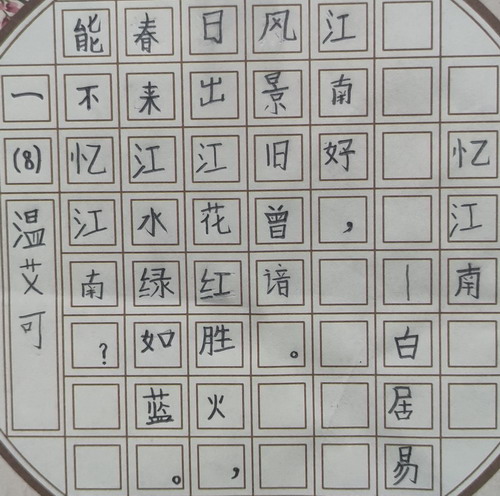 忆江南
—白居易
江南好，
风景旧曾谙。
日出江花红胜火，
春来江水绿如蓝。
能不忆江南？
一(8)
温艾可